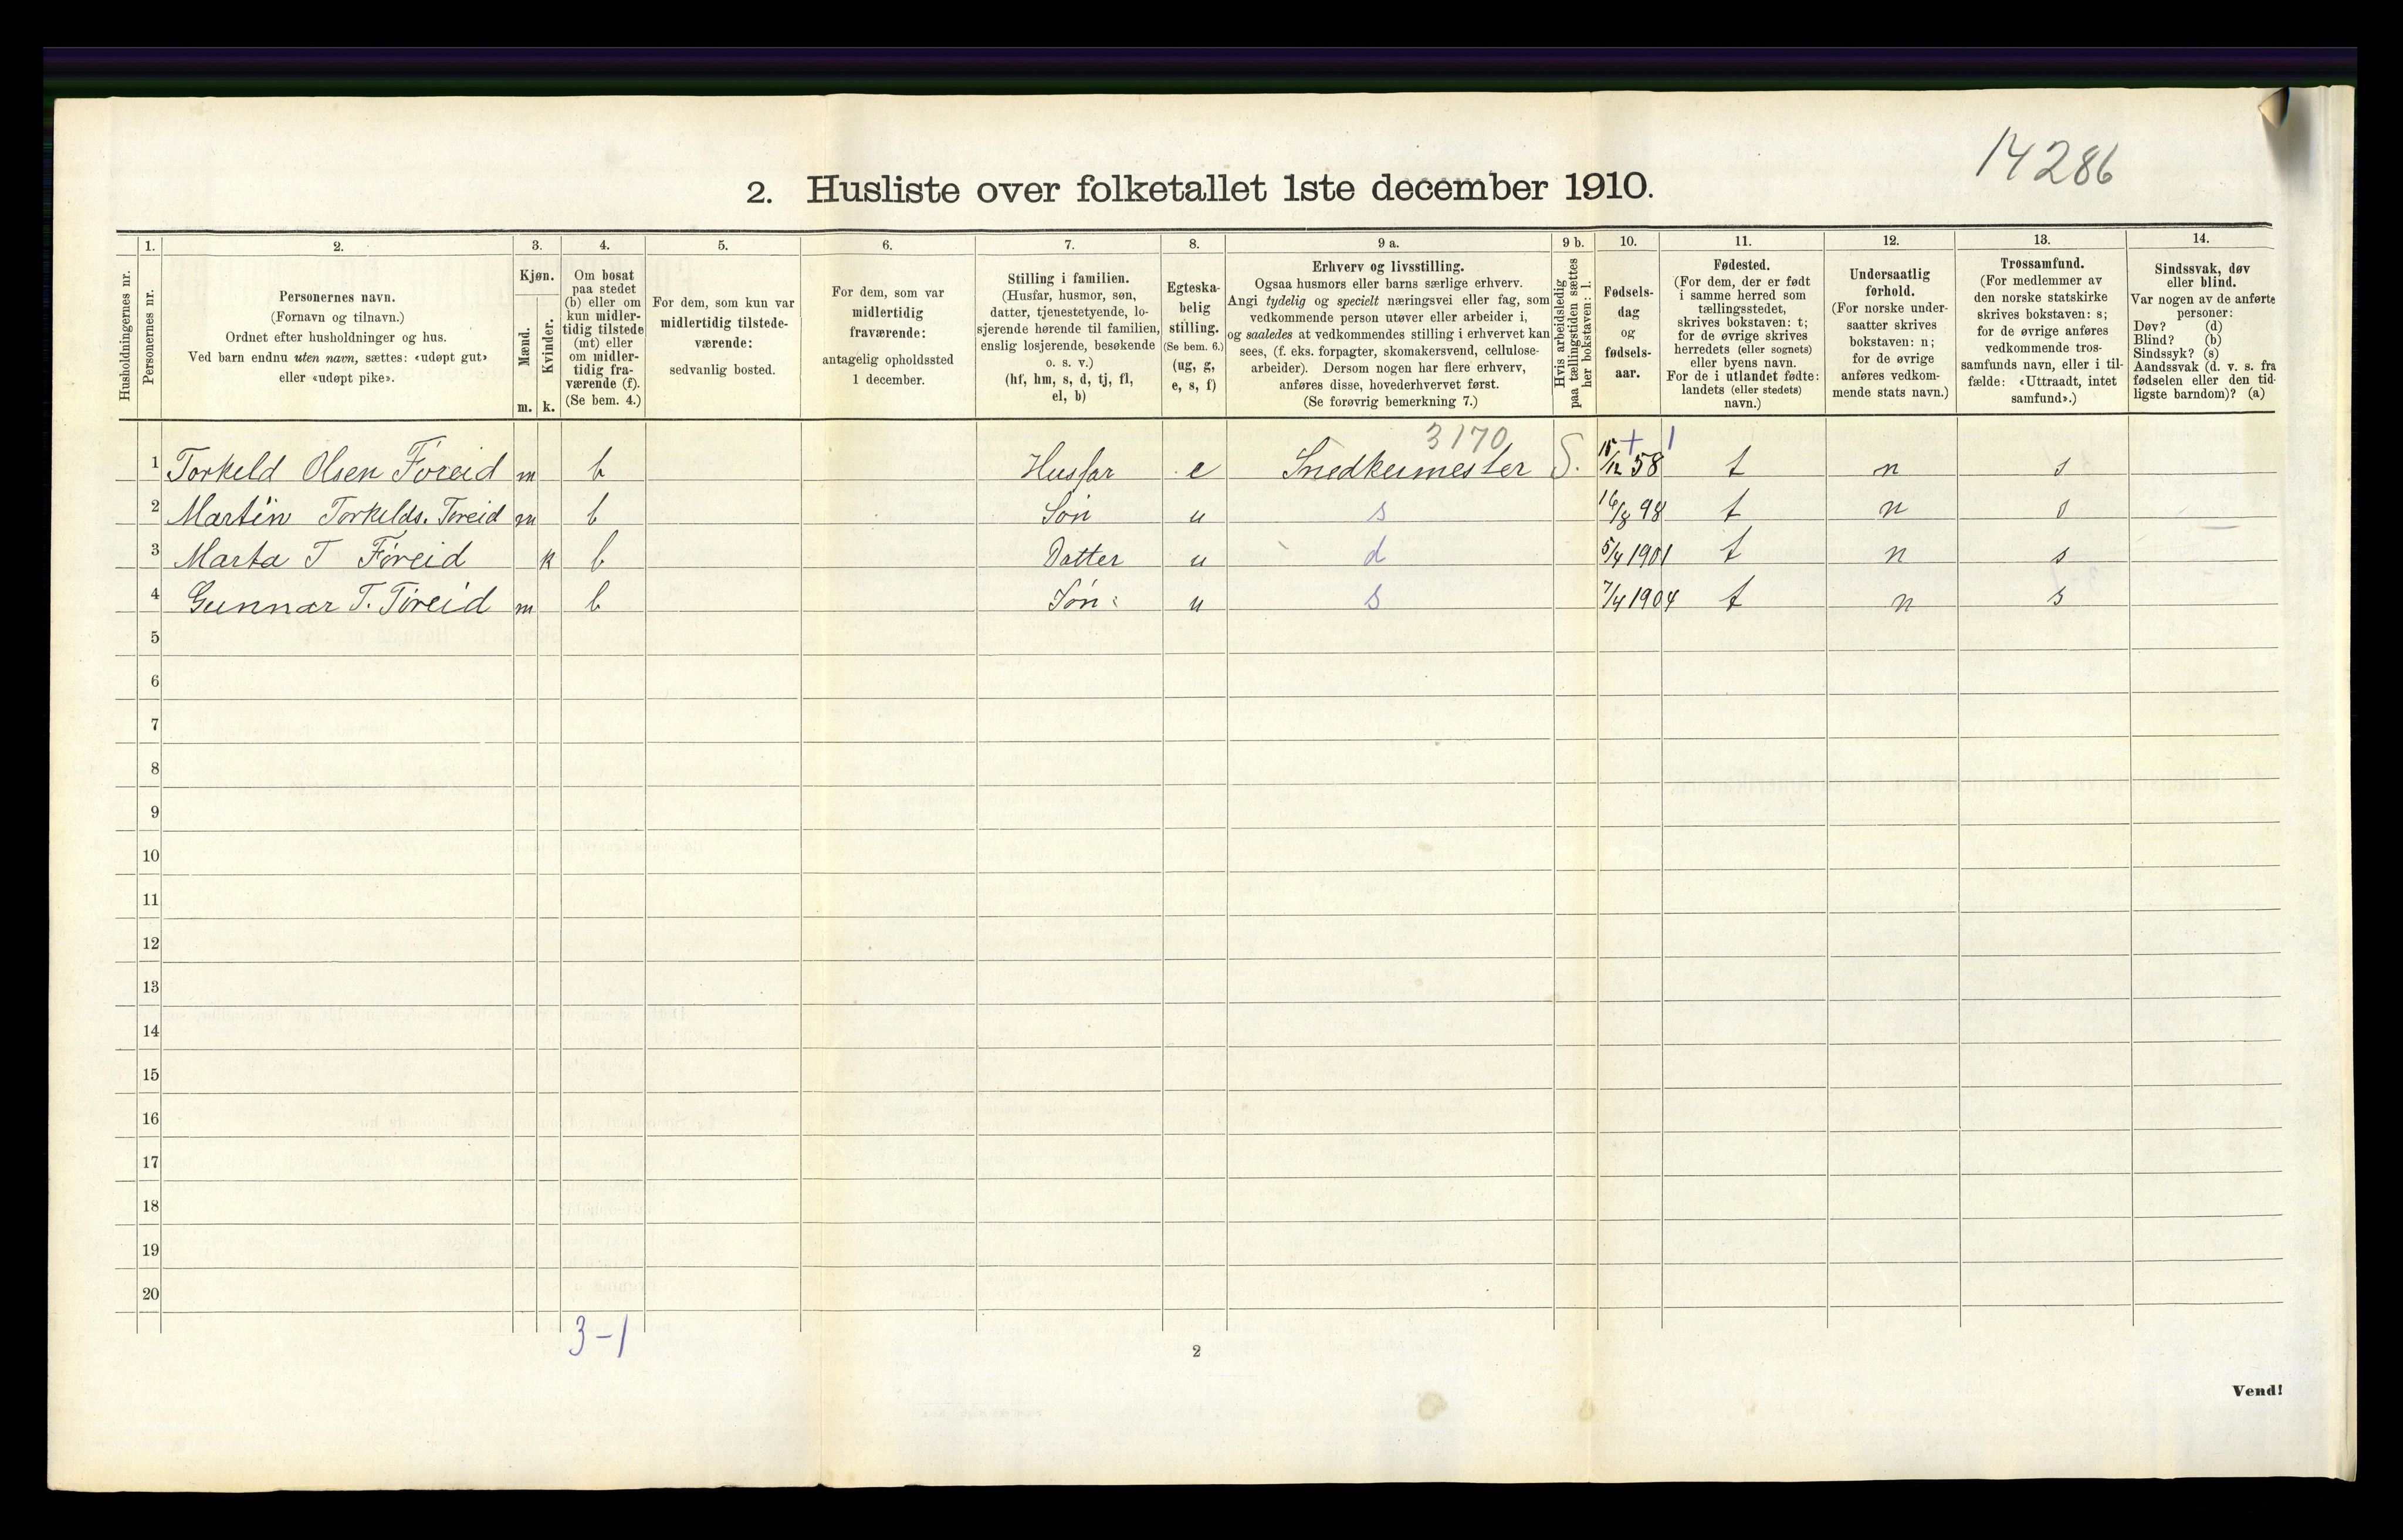 14286
2. Husliste over folketallet 1ste december 1910.
Husholdningernes nr.
1.
Personernes nr.
2.
Personernes navn.
(Fornavn og tilnavn.)
Ordnet efter husholdninger og hus.
Ved barn endnu uten navn, sættes: «udøpt gut»
eller «udøpt pike».
3.
Kjøn.
Mænd.
Kvinder.
m. k.
4.
Om bosat
paa stedet
(b) eller om
kun midler-
tidig tilstede
(mt) eller
om midler-
tidig fra-
værende (f).
(Se bem. 4.)
5.
For dem, som kun var
midlertidig tilstede-
værende:
sedvanlig bosted.
6.
For dem, som var
midlertidig
fraværende:
antagelig opholdssted
1 december.
7.
Stilling i familien.
(Husfar, husmor, søn,
datter, tjenestetyende, lo-
sjerende hørende til familien,
enslig losjerende, besøkende
o. s. v.)
(hf, hm, s, d, tj, fl,
el, b)
8.
Egteska-
belig
stilling.
(Se bem. 6.)
(ug, g,
e, s, f)
9 a.
Erhverv og livsstilling.
Ogsaa husmors eller barns særlige erhverv.
Angi tydelig og specielt næringsvei eller fag, som
vedkommende person utøver eller arbeider i,
og saaledes at vedkommendes stilling i erhvervet kan
sees, (f. eks. forpagter, skomakersvend, cellulose-
arbeider). Dersom nogen har flere erhverv,
anføres disse, hovederhvervet først.
(Se forøvrig bemerkning 7.)
9 b.
Hvis arbeidsledig
paa tællingstiden sættes
her bokstaven: l.
10.
Fødsels-
dag
og
fødsels-
aar.
11.
Fødested.
(For dem, der er født
i samme herred som
tællingsstedet,
skrives bokstaven: t;
for de øvrige skrives
herredets (eller sognets)
eller byens navn.
For de i utlandet fødte:
landets (eller stedets)
navn.)
12.
Undersaatlig
forhold.
(For norske under-
saatter skrives
bokstaven: n;
for de øvrige
anføres vedkom-
mende stats navn.)
13.
Trossamfund.
(For medlemmer av
den norske statskirke
skrives bokstaven: s;
for de øvrige anføres
vedkommende tros-
samfunds navn, eller i til-
fælde: «Uttraadt, intet
samfund».)
14.
Sindssvak, døv
eller blind.
Var nogen av de anførte
personer:
Døv? (d)
Blind? (b)
Sindssyk? (s)
Aandssvak (d. v. s. fra
fødselen eller den tid-
ligste barndom)? (a)
3170 + 1
1 Torkeld Olsen Föreid m b Husfar e Snedkermester S. 15/12 58 t n s
2 Martin Torkelds. Föreid m b Søn u s 16/8 98 t n s
3 Marta T Föreid k b Datter u d 5/4 1901 t n s
4 Gunnar T. Föreid m b Søn u s 7/4 1904 t n s
5
6
7
8
9
10
11
12
13
14
15
16
17
18
19
20
3-1
2
Vend!